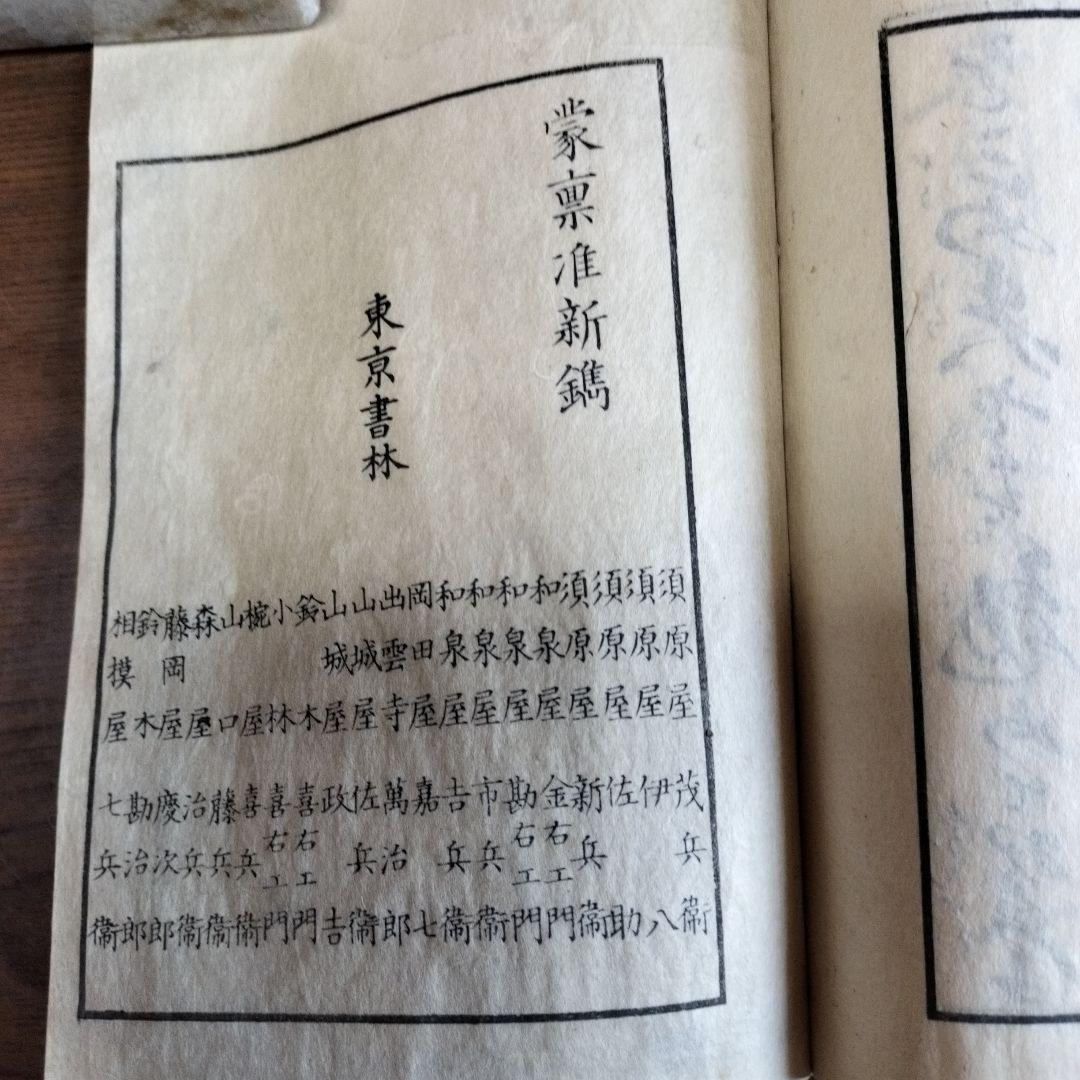 蒙禀准新鐫
東亰書林
須原屋茂兵衞
須原屋伊八
須原屋佐助
須原屋新兵衞
和泉屋金右エ門
和泉屋勘右エ門
和泉屋市兵衞
和泉屋吉兵衞
岡田屋嘉七
出雲寺萬治郎
山城屋佐兵衞
山城屋政吉
鈴木喜右エ門
小林喜右エ門
椀屋喜兵衞
山口藤兵衞
森屋治兵衞
藤岡屋慶次郎
鈴木勘治郎
相摸屋七兵衞